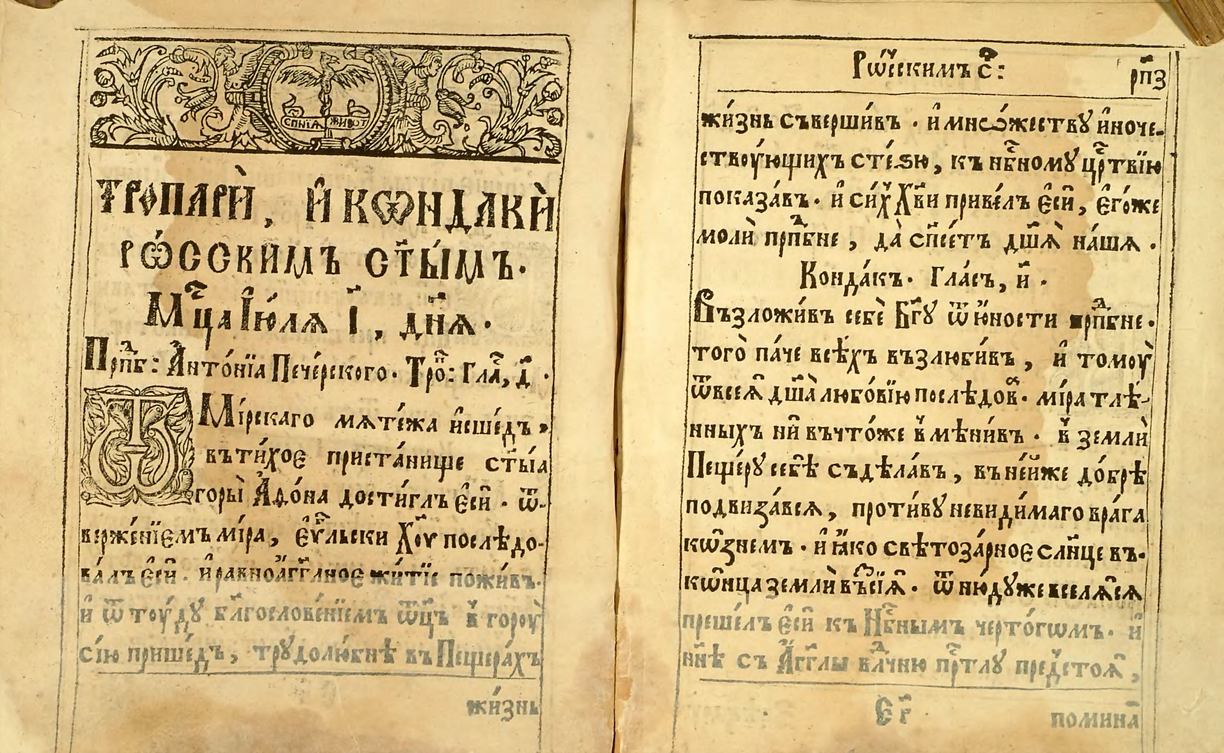 СПНІА ЖИВОТ
ТРОПАРЍ, И҆ КѠНДАКЍ
РѠ́ССКИМЪ СТ҃Ы́МЪ.
Мⷭ҇ца І҆ю́лѧ І҃, дн҃ѧ.
Прпⷣб: А҆нто́нїа Пече́рского. Троⷫ҇: Гла́, д҃.
Ѿ Мі́рскаго мѧте́жа и҆сше́дъ,
въ ти́хое приста́нище ст҃ы́а
горы̀ А҆ѳо́на дости́глъ є҆сѝ. ѿ-
верже́нїемъ мі́ра, є҆ѵⷢ҇льски Хо҃у послѣдо-
ва́лъ є҆сѝ. и҆ равноа҆́гг҃лное житїе пожи́въ.
и҆ ѿтоу́ду бл҃гослове́нїемъ ѻ҆ц҃ъ в̾ гороу̀
сїю прише́дъ, трудолю́бнѣ въ Пеще́рахъ
жи́знь
Рѡ́сскимъ с:
рп҃з
жи́знь съверши́въ. и҆ мно́жеству и҆ноче-
ствоу́ющихъ сте́зю, къ нбⷭ҇ному црⷭ҇твїю
показа́въ. и҆ си́х Хв҃и приве́лъ є҆сѝ, є҆го́же
молѝ прпⷣбне, да̀ сп҃се́тъ дш҃ѧ̀ на́шѧ.
Конда́къ. Гла́съ, и҃.
Възложи́въ себѐ Бг҃у ѿ ю҆́ности прпⷣбне.
того̀ па́че всѣ́хъ възлюби́въ, и҆ томоу̀
ѿ всеѧ̀ дш҃а̀ любо́вїю послѣдов. мі́ра тлѣ́-
нныхъ ни въ что́же в̾мѣни́въ. в̾ землѝ
Пеще́ру себѣ̀ съдѣ́лавъ, въ не́йже до́брѣ
подвиза́всѧ, проти́ву неви́димаго врага̀
кѡ́знемъ. и҆ ꙗ҆́ко свѣтоза́рное сл҃нце въ-
кѡнца̀ землѝ въсїѧ̀. ѿ ню́дуже вселѧ́сѧ
преше́лъ є҆сѝ къ Нбⷭ҇нымъ черто́гѡмъ. и҆
нн҃ѣ съ А҆́гг҃лы влⷣчню прⷭ҇тлу предстоѧ̀,
Є҃г помина́